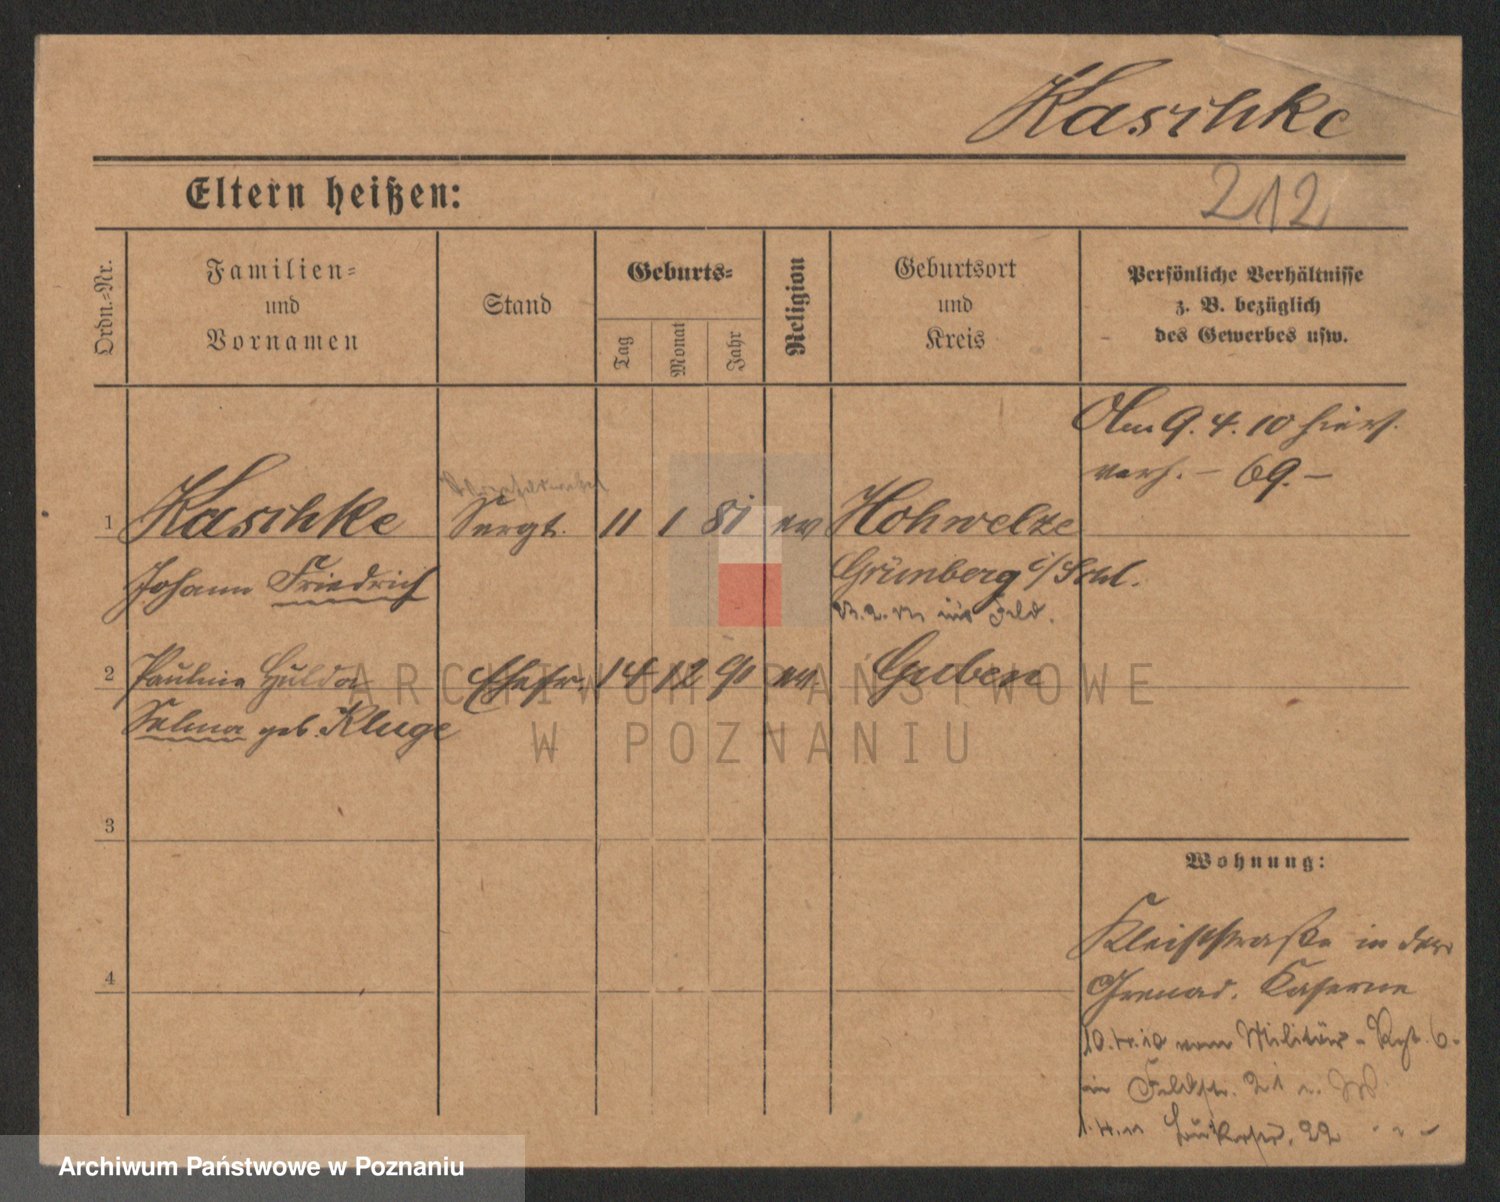 Kaschke
212
Eltern heißen:
Ordn.-Nr.
Familien-
und
Vornamen
Stand
Geburts-
Tag
Monat
Jahr
Religion
Geburtsort
und
Kreis
Persönliche Verhältnisse
z. B. bezüglich
des Gewerbes usw.
Am 9. 4. 10 hier
verh. – 69. –
1 Kaschke Sergt. 11 1 81 ev Hohwelze
Johann Friedrich Grünberg i/Schl.
ins Feld.
2 Pauline Hulda Ehefr. 14 12 90 ev. Guben
Selma geb. Kluge
3
Wohnung:
4
Kleiststraße in der
Grenad. Kaserne
10. 10 vom Militär-Rgt. 6.
in 21
22
ARCHIWUM PAŃSTWOWE
W POZNANIU
Archiwum Państwowe w Poznaniu